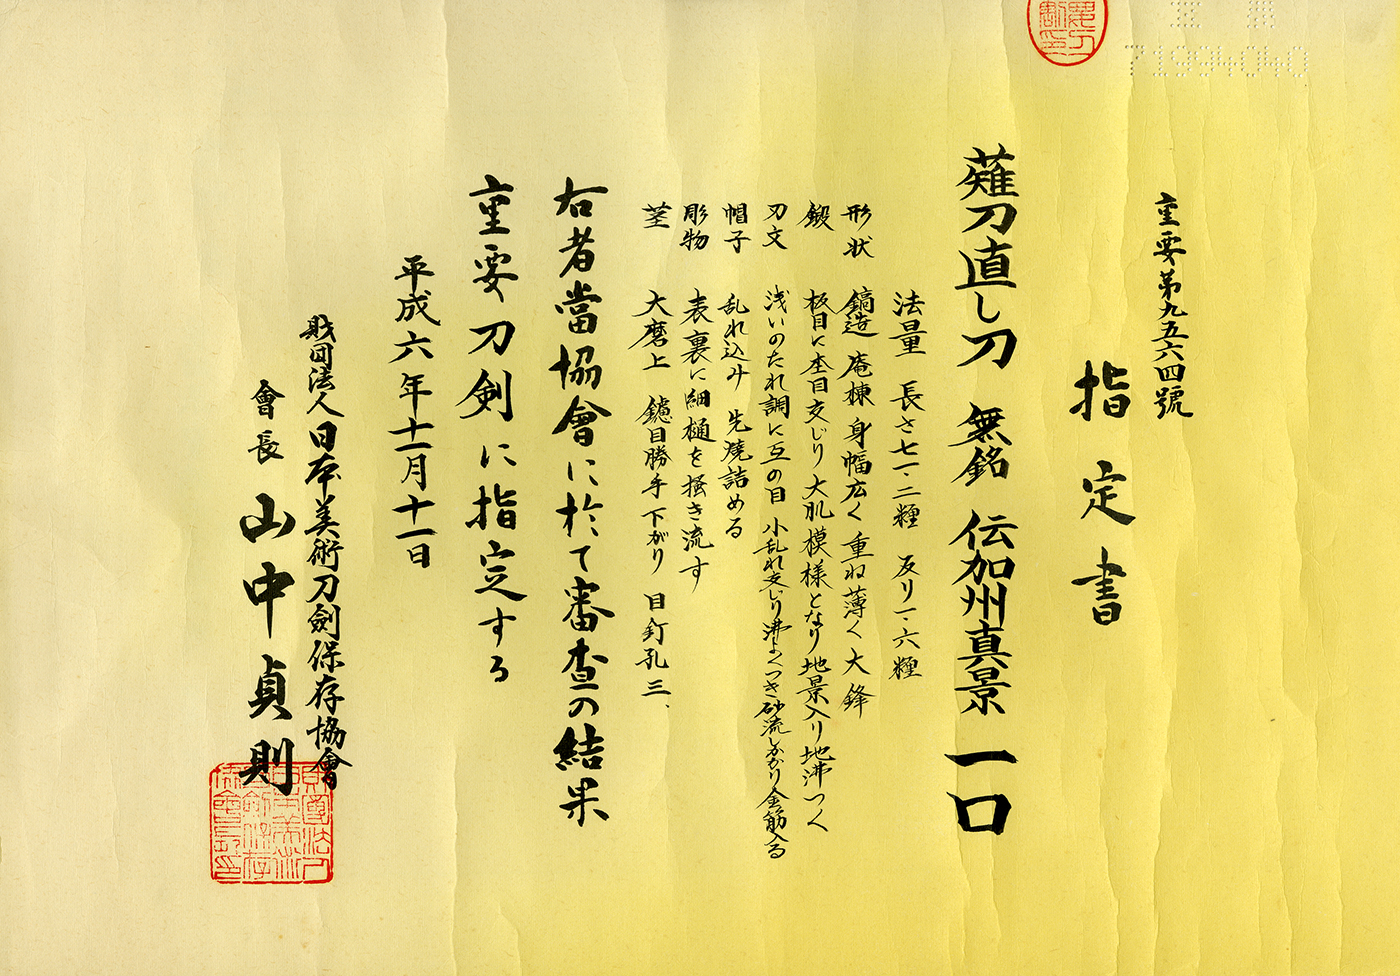 71994040
重要第九五六四號
指定書
薙刀直し刀 無銘 伝加州真景 一口
法量 長さ七一・二糎 反り一・六糎
形状 鎬造 庵棟 身幅広く 重ね薄く 大鋒
鍛 板目に杢目交じり 大肌模様となり 地景入り 地沸つく
刃文 浅いのたれ調に互の目 小乱れ交じり 沸よくつき 砂流しかかり 金筋入る
帽子 乱れ込み 先焼詰める
彫物 表裏に細樋を掻き流す
茎 大磨上 鑢目勝手下がり 目釘孔三、
右者當協會に於て審査の結果
重要刀剣に指定する
平成六年十一月十一日
財団法人日本美術刀劍保存協會
會長 山中貞則